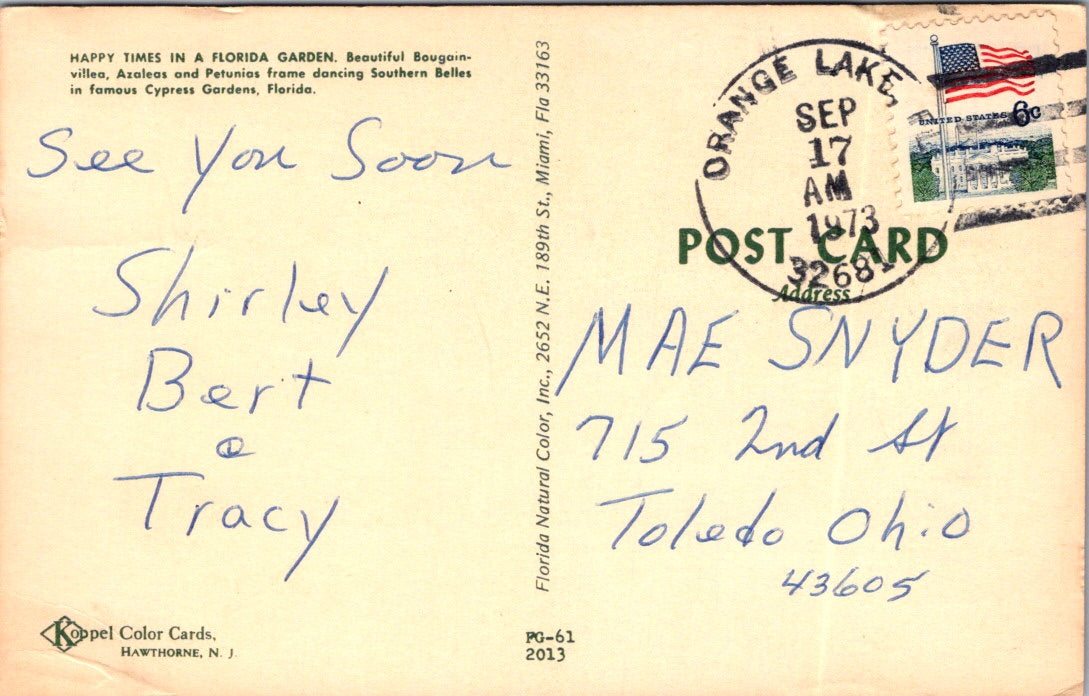 HAPPY TIMES IN A FLORIDA GARDEN. Beautiful Bougain-
villea, Azaleas and Petunias frame dancing Southern Belles
in famous Cypress Gardens, Florida.
See You Soon
Shirley
Bert
a
Tracy
Koppel Color Cards,
HAWTHORNE, N. J.
Florida Natural Color, Inc., 2652 N.E. 189th St., Miami, Fla 33163
PG-61
2013
ORANGE LAKE,
SEP
17
AM
1973
32681
UNITED STATES 6c
POST CARD
Address
MAE SNYDER
715 2nd St
Toledo Ohio
43605